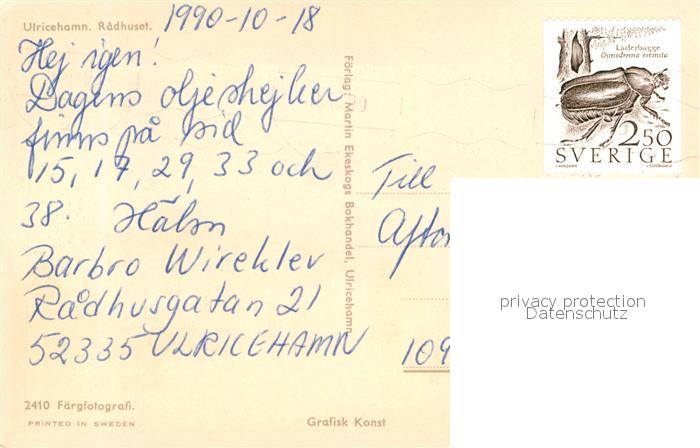 Ulricehamn. Rådhuset.
1990-10-18
Hej igen!
Dagens oljeshejker
finns på sid
15, 17, 29, 33 och
38. Hälsn
Barbro Wirekler
Rådhusgatan 21
52335 ULRICEHAMN
2410 Färgfotografi.
PRINTED IN SWEDEN
Förlag: Martin Ekeskogs Bokhandel, Ulricehamn
Grafisk Konst
Läderbagge
Osmoderma eremita
2.50
SVERIGE
Till
Afton
109
privacy protection
Datenschutz